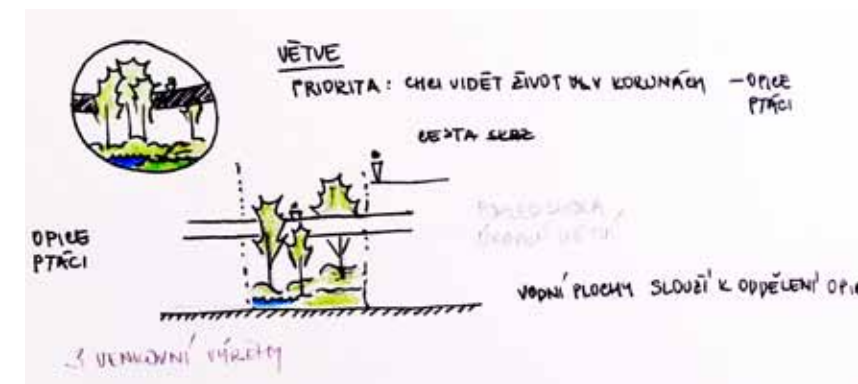 VĚTVE
PRIORITA: CHCI VIDĚT ŽIVOT V KORUNÁCH – OPICE
PTÁCI
CESTA SKRZ
OPICE
PTÁCI
VODNÍ PLOCHY SLOUŽÍ K ODDĚLENÍ OPI
3 VENKOVNÍ VÝBĚHY